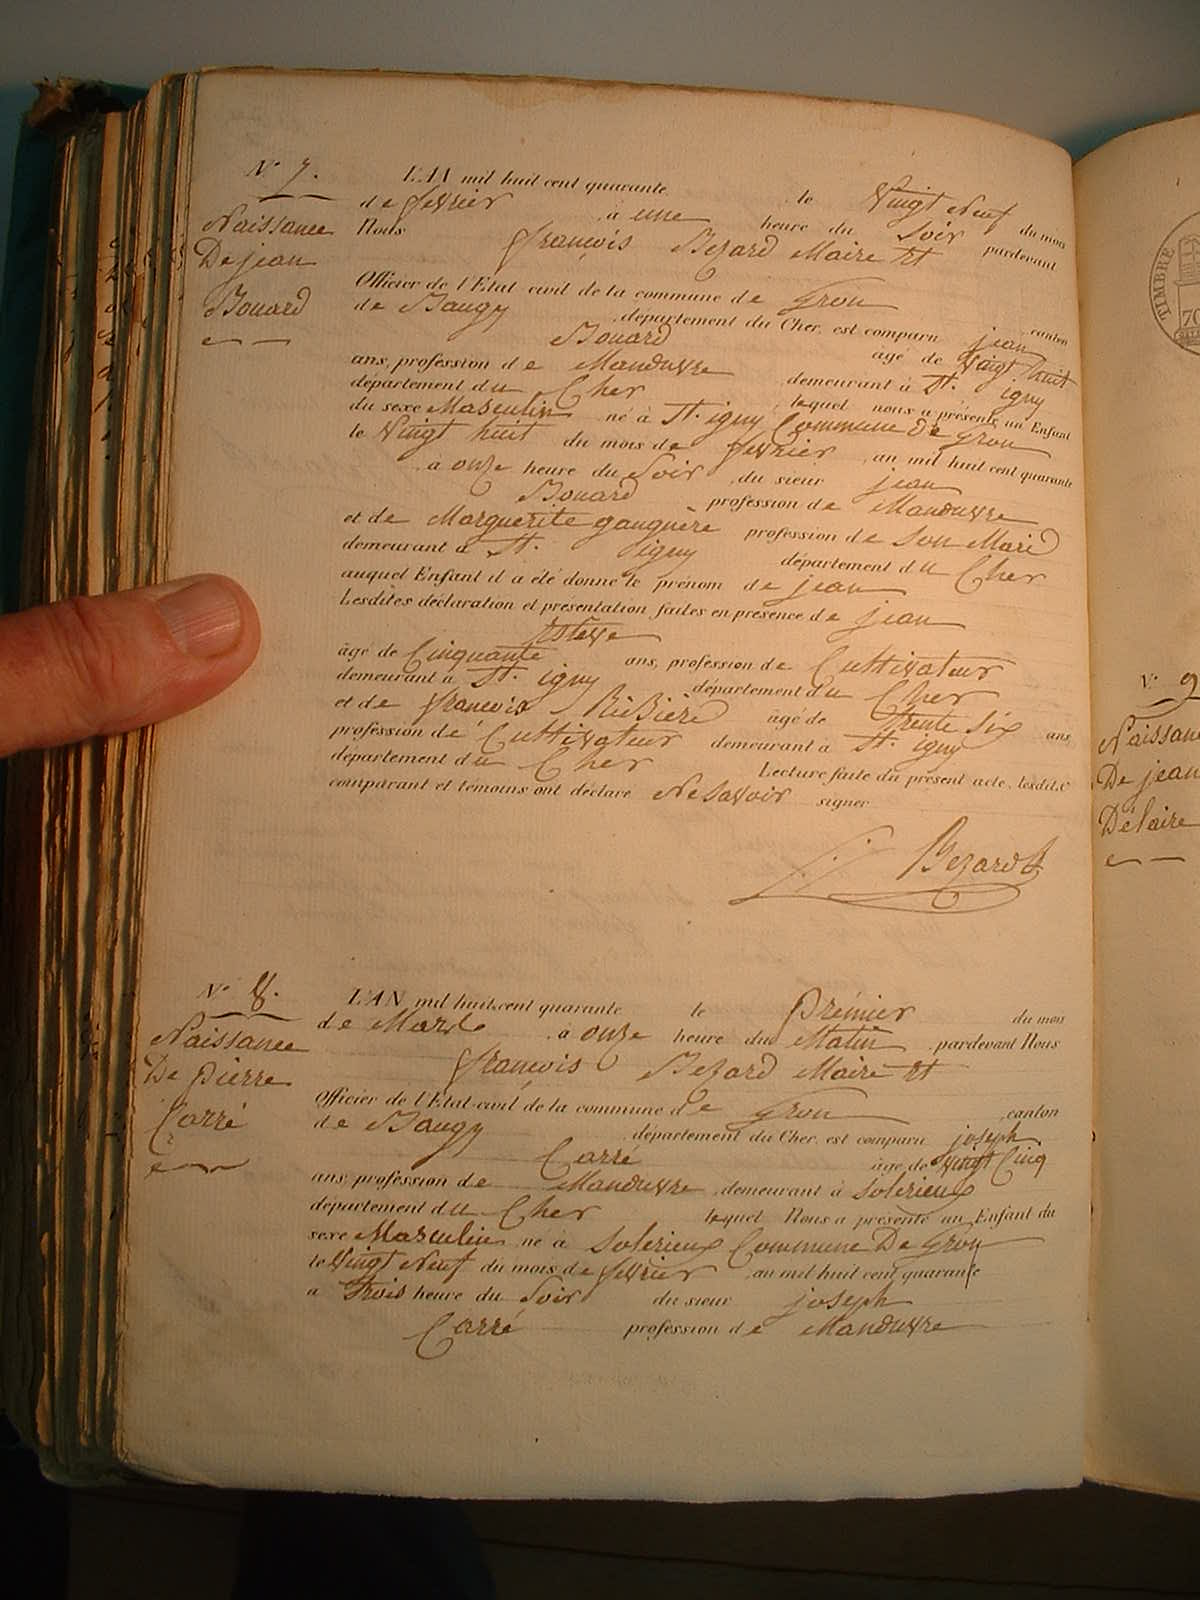 N° 7.
Naissance
De jean
Bouard
L'AN mil huit cent quarante le Vingt Neuf du mois
de fevrier à une heure du Soir pardevant
Nous françois Bezard Maire Et
Officier de l'Etat civil de la commune de Gron canton
de Baugy département du Cher, est comparu jean
Bouard agé de Vingt huit
ans, profession de Manœuvre demeurant à St. igny
département du Cher lequel nous a présenté un Enfant
du sexe Masculin né à St. igny Commune De Gron
le Vingt huit du mois de fevrier an mil huit cent quarante
à onze heure du Soir du sieur jean
Bouard profession de Manœuvre
et de Marguerite profession de Son Mari
demeurant à St. igny département du Cher
auquel Enfant il a été donné le prénom de jean
Lesdites déclaration et présentation faites en présence de jean
Esteve
âgé de Cinquante ans, profession de Cultivateur
demeurant à St. igny département du Cher
et de françois Riviere âgé de Trente Six ans
profession de Cultivateur demeurant à St. igny
département du Cher Lecture faite du présent acte, lesdits
comparant et témoins ont déclaré Ne Savoir signer
Bezard
N° 8.
Naissance
De pierre
Carré
L'AN mil huit cent quarante le Prémier du mois
de Mars à onze heure du Matin pardevant Nous
françois Bezard Maire Et
Officier de l'Etat-civil de la commune de Gron canton
de Baugy département du Cher, est comparu joseph
Carré âgé de Vingt Cinq
ans, profession de Manœuvre demeurant à Solerieux
département du Cher lequel Nous a présenté un Enfant du
sexe Masculin né à Solerieux Commune De Gron
le Vingt Neuf du mois de fevrier an mil huit cent quarante
à Trois heure du Soir du sieur joseph
Carré profession de Manœuvre
TIMBRE
70
N° 9
Naissan
De jean
Delaire